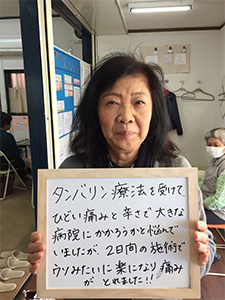 タンバリン療法を受けて
ひどい痛みと辛さで大きな
病院にかかろうかと悩んで
いましたが、2日間の施術で
ウソみたいに楽になり痛み
がとれました!!